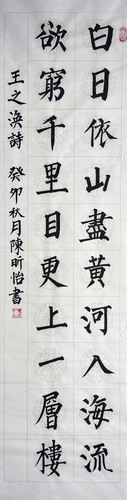 白日依山盡黃河入海流
欲窮千里目更上一層樓
王之渙詩 癸卯秋月陳昕怡書